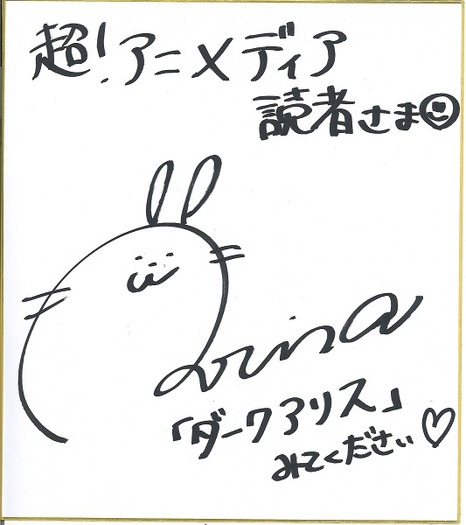 超!アニメディア
読者さま
「ダークアリス」
みてください♡